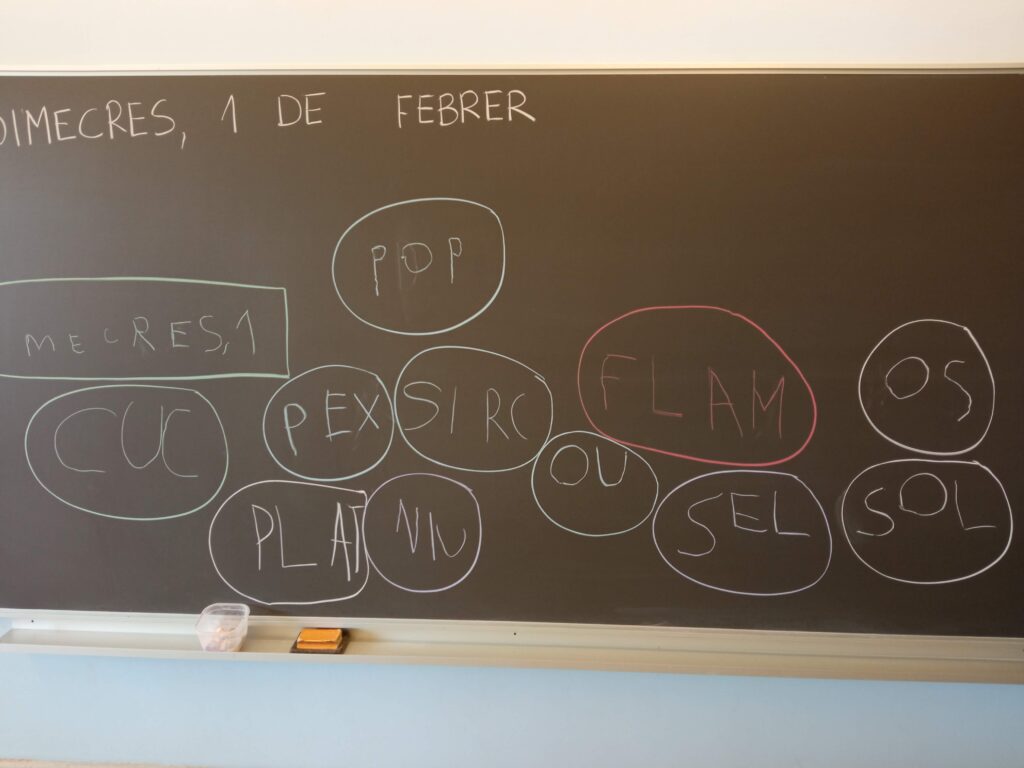 DIMECRES, 1 DE FEBRER
POP
MECRES, 1
CUC
PEX
SIRC
FLAM
OS
PLAT
NIU
OU
SEL
SOL